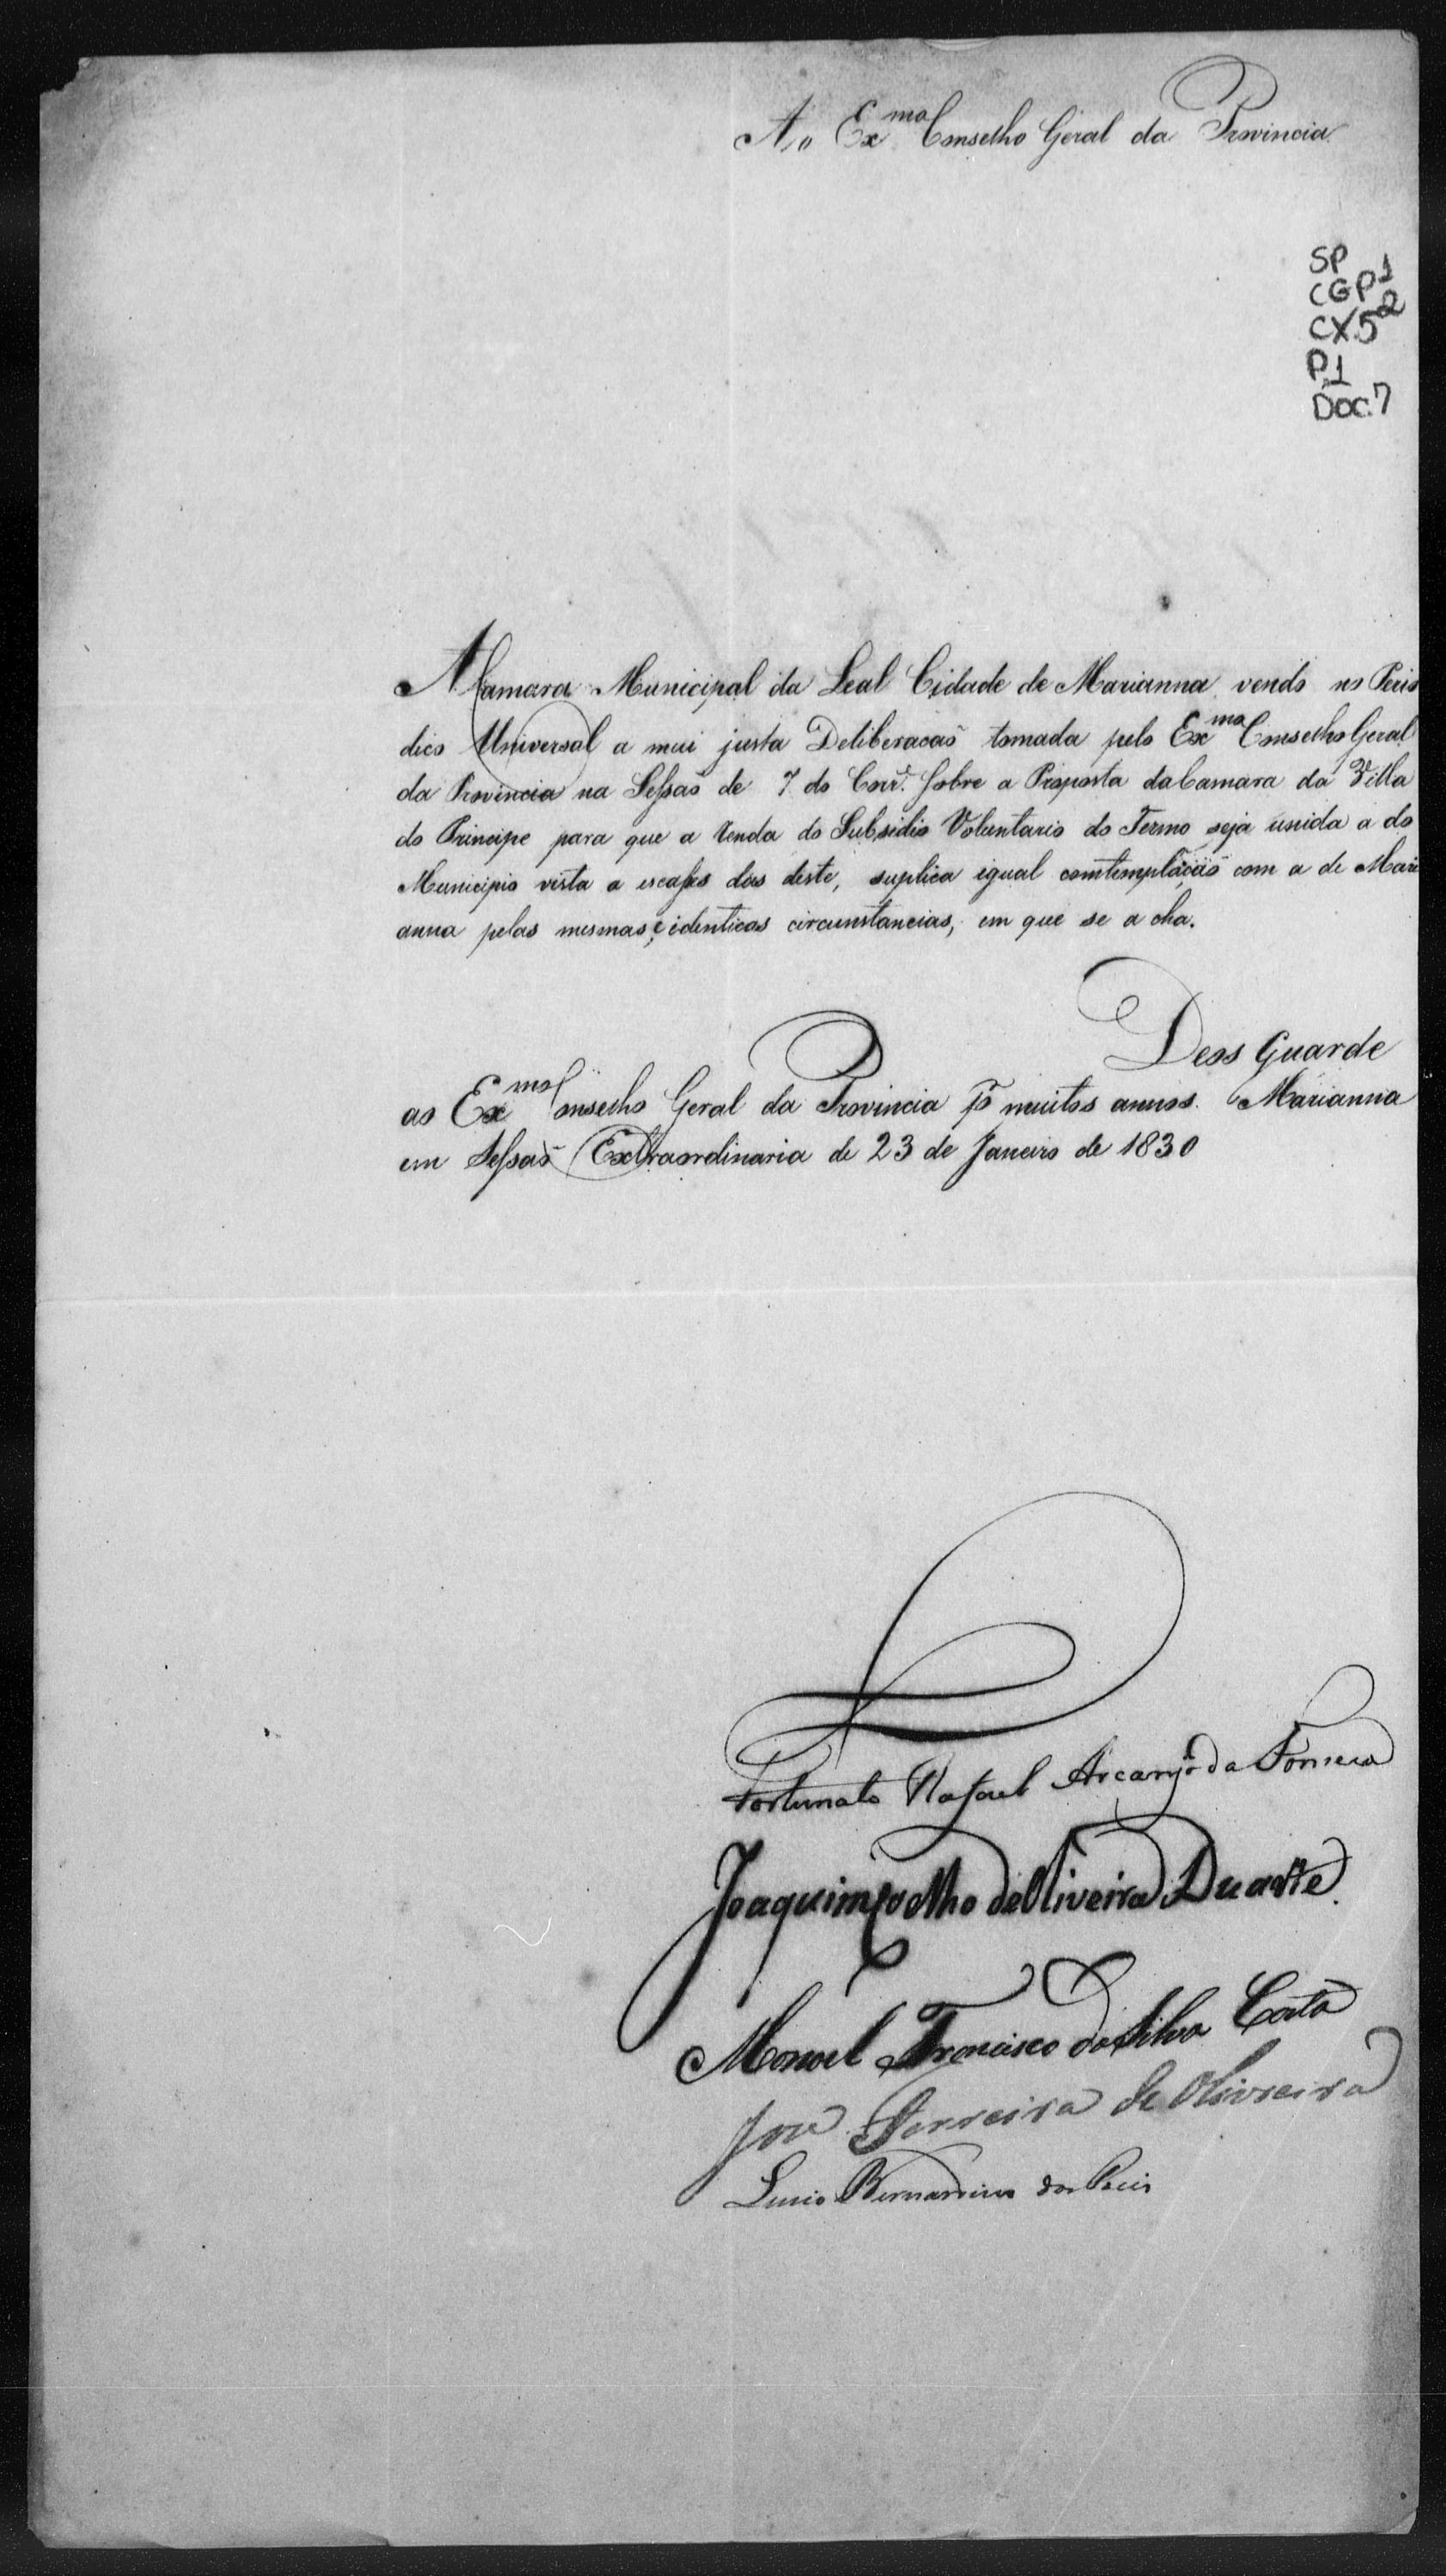 Ao Ex.mo Conselho Geral da Provincia
SP
CGP1
CX.52
P.1
Doc.7
A Camara Municipal da Leal Cidade de Marianna vendo no Perio
dico Universal a mui justa Deliberacaõ tomada pelo Exmo Conselho Geral
da Provincia na Seſsaõ de 7 do Corr.e ſobre a Proposta da Camara da Villa
do Principe para que a Renda do Subsidio Voluntario do Termo seja unida a do
Municipio vista a escaſses das deste, suplica igual comtemplaçaõ com a de Mari
anna pelas mesmas, e identicas circunstancias, em que se a cha.
Deos Guarde
ao Exmo Conselho Geral da Provincia pr muitos annos. Marianna
em Seſsaõ Extraordinaria de 23 de Janeiro de 1830
Fortunato Rafael Arcanjo da Fonseca
Joaquim Coelho de Oliveira Duarte.
Manoel Francisco da Silva Costa
Joze Ferreira de Oliveira
Lucio Bernardino dos Reis